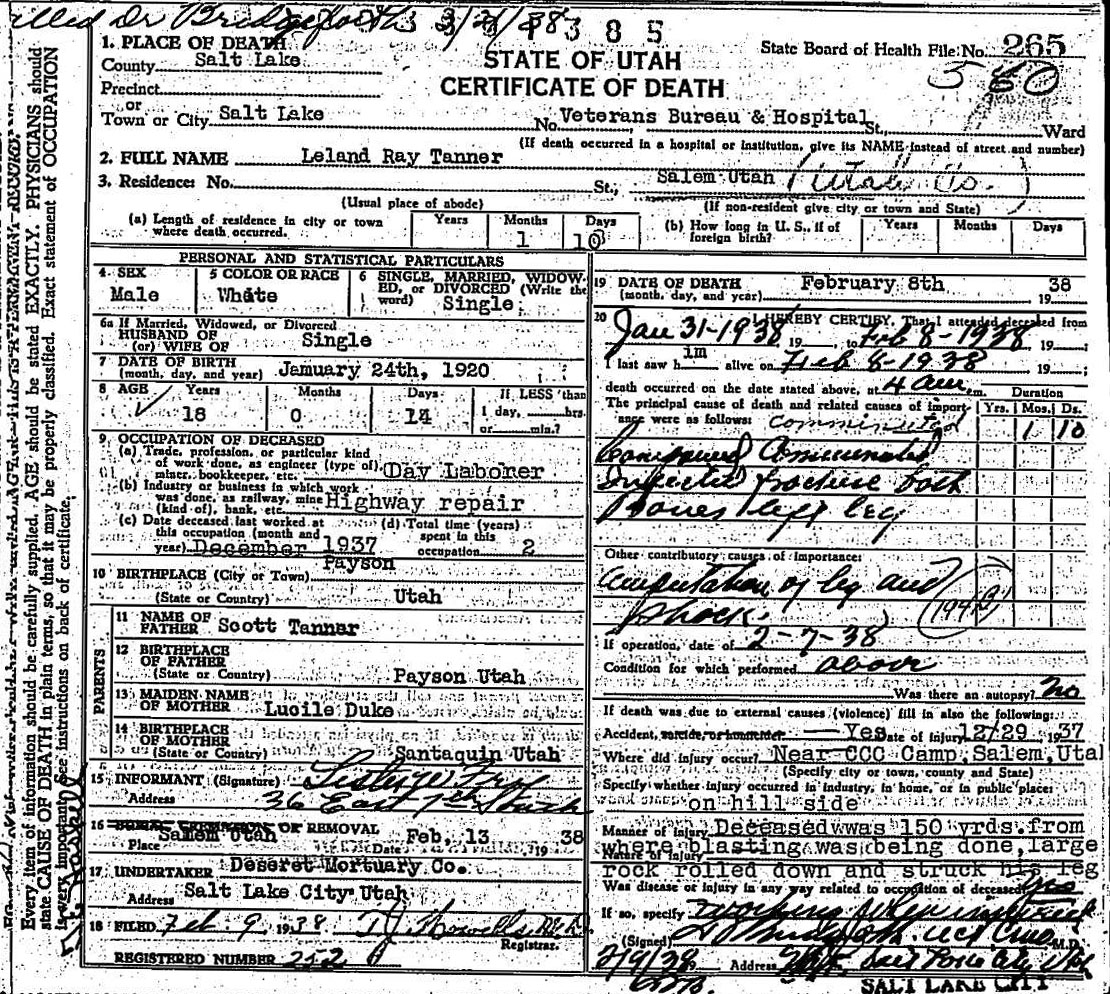 Dr Bridgeforth 3/21/38 385
1. PLACE OF DEATH
County Salt Lake
Precinct
or
Town or City Salt Lake
STATE OF UTAH
CERTIFICATE OF DEATH
State Board of Health File No. 265
580
No. Veterans Bureau & Hospital St., Ward
(If death occurred in a hospital or institution, give its NAME instead of street and number)
2. FULL NAME Leland Ray Tanner
3. Residence: No. St., Salem Utah (Utah Co.)
(Usual place of abode) (If non-resident give city or town and State)
(a) Length of residence in city or town where death occurred. Years Months 1 Days 10
(b) How long in U. S., if of foreign birth? Years Months Days
PERSONAL AND STATISTICAL PARTICULARS
4 SEX
Male
5 COLOR OR RACE
White
6 SINGLE, MARRIED, WIDOWED, or DIVORCED (Write the word) Single
6a If Married, Widowed, or Divorced
HUSBAND OF
(or) WIFE OF Single
7 DATE OF BIRTH
(month, day, and year) January 24th, 1920
8 AGE Years Months Days If LESS than
18 0 14 1 day, hrs.
or min.?
9 OCCUPATION OF DECEASED
(a) Trade, profession, or particular kind
of work done, as engineer (type of)
miner, bookkeeper, etc. Day Laborer
(b) Industry or business in which work
was done, as railway, mine
(kind of), bank, etc. Highway repair
(c) Date deceased last worked at
this occupation (month and
year) December 1937
(d) Total time (years)
spent in this
occupation 2
10 BIRTHPLACE (City or Town) Payson
(State or Country) Utah
PARENTS
11 NAME OF
FATHER Scott Tanner
12 BIRTHPLACE
OF FATHER
(State or Country) Payson Utah
13 MAIDEN NAME
OF MOTHER Lucile Duke
14 BIRTHPLACE
OF MOTHER
(State or Country) Santaquin Utah
15 INFORMANT (Signature)
Address 36 East 7th South
16 BURIAL CREMATION OR REMOVAL
Place Salem Utah Date Feb. 13 19 38
17 UNDERTAKER Deseret Mortuary Co.
Address Salt Lake City Utah
18 FILED Feb. 9 1938 T J Howells
Registrar.
REGISTERED NUMBER 252
19 DATE OF DEATH
(month, day, and year) February 8th 19 38
20 I HEREBY CERTIFY, That I attended deceased from
Jan 31-1938 19 , to Feb 8-1938 19 ;
I last saw him alive on Feb 8-1938 19 ;
death occurred on the date stated above, at 4 am m.
The principal cause of death and related causes of importance were as follows: Duration Yrs. Mos. Ds.
comminuted 1 10
Compound Comminuted
Infected fracture both
Bones left leg
Other contributory causes of importance:
amputation of leg and
shock.
If operation, date of 2-7-38
Condition for which performed above
Was there an autopsy? No
If death was due to external causes (violence) fill in also the following:
Accident, suicide, or homicide? Yes Date of injury 12/29 1937
Where did injury occur? Near CCC Camp, Salem, Utah
(Specify city or town, county and State)
Specify whether injury occurred in industry, in home, or in public place:
on hill side
Manner of injury Deceased was 150 yrds. from
Nature of injury where blasting was being done, large
rock rolled down and struck his leg
Was disease or injury in any way related to occupation of deceased? Yes
If so, specify working when
(Signed) M.D.
2/9/38 Address
SALT LAKE CITY
Every item of information should be carefully supplied. AGE should be stated EXACTLY. PHYSICIANS should
state CAUSE OF DEATH in plain terms, so that it may be properly classified. Exact statement of OCCUPATION
is very important. See instructions on back of certificate.